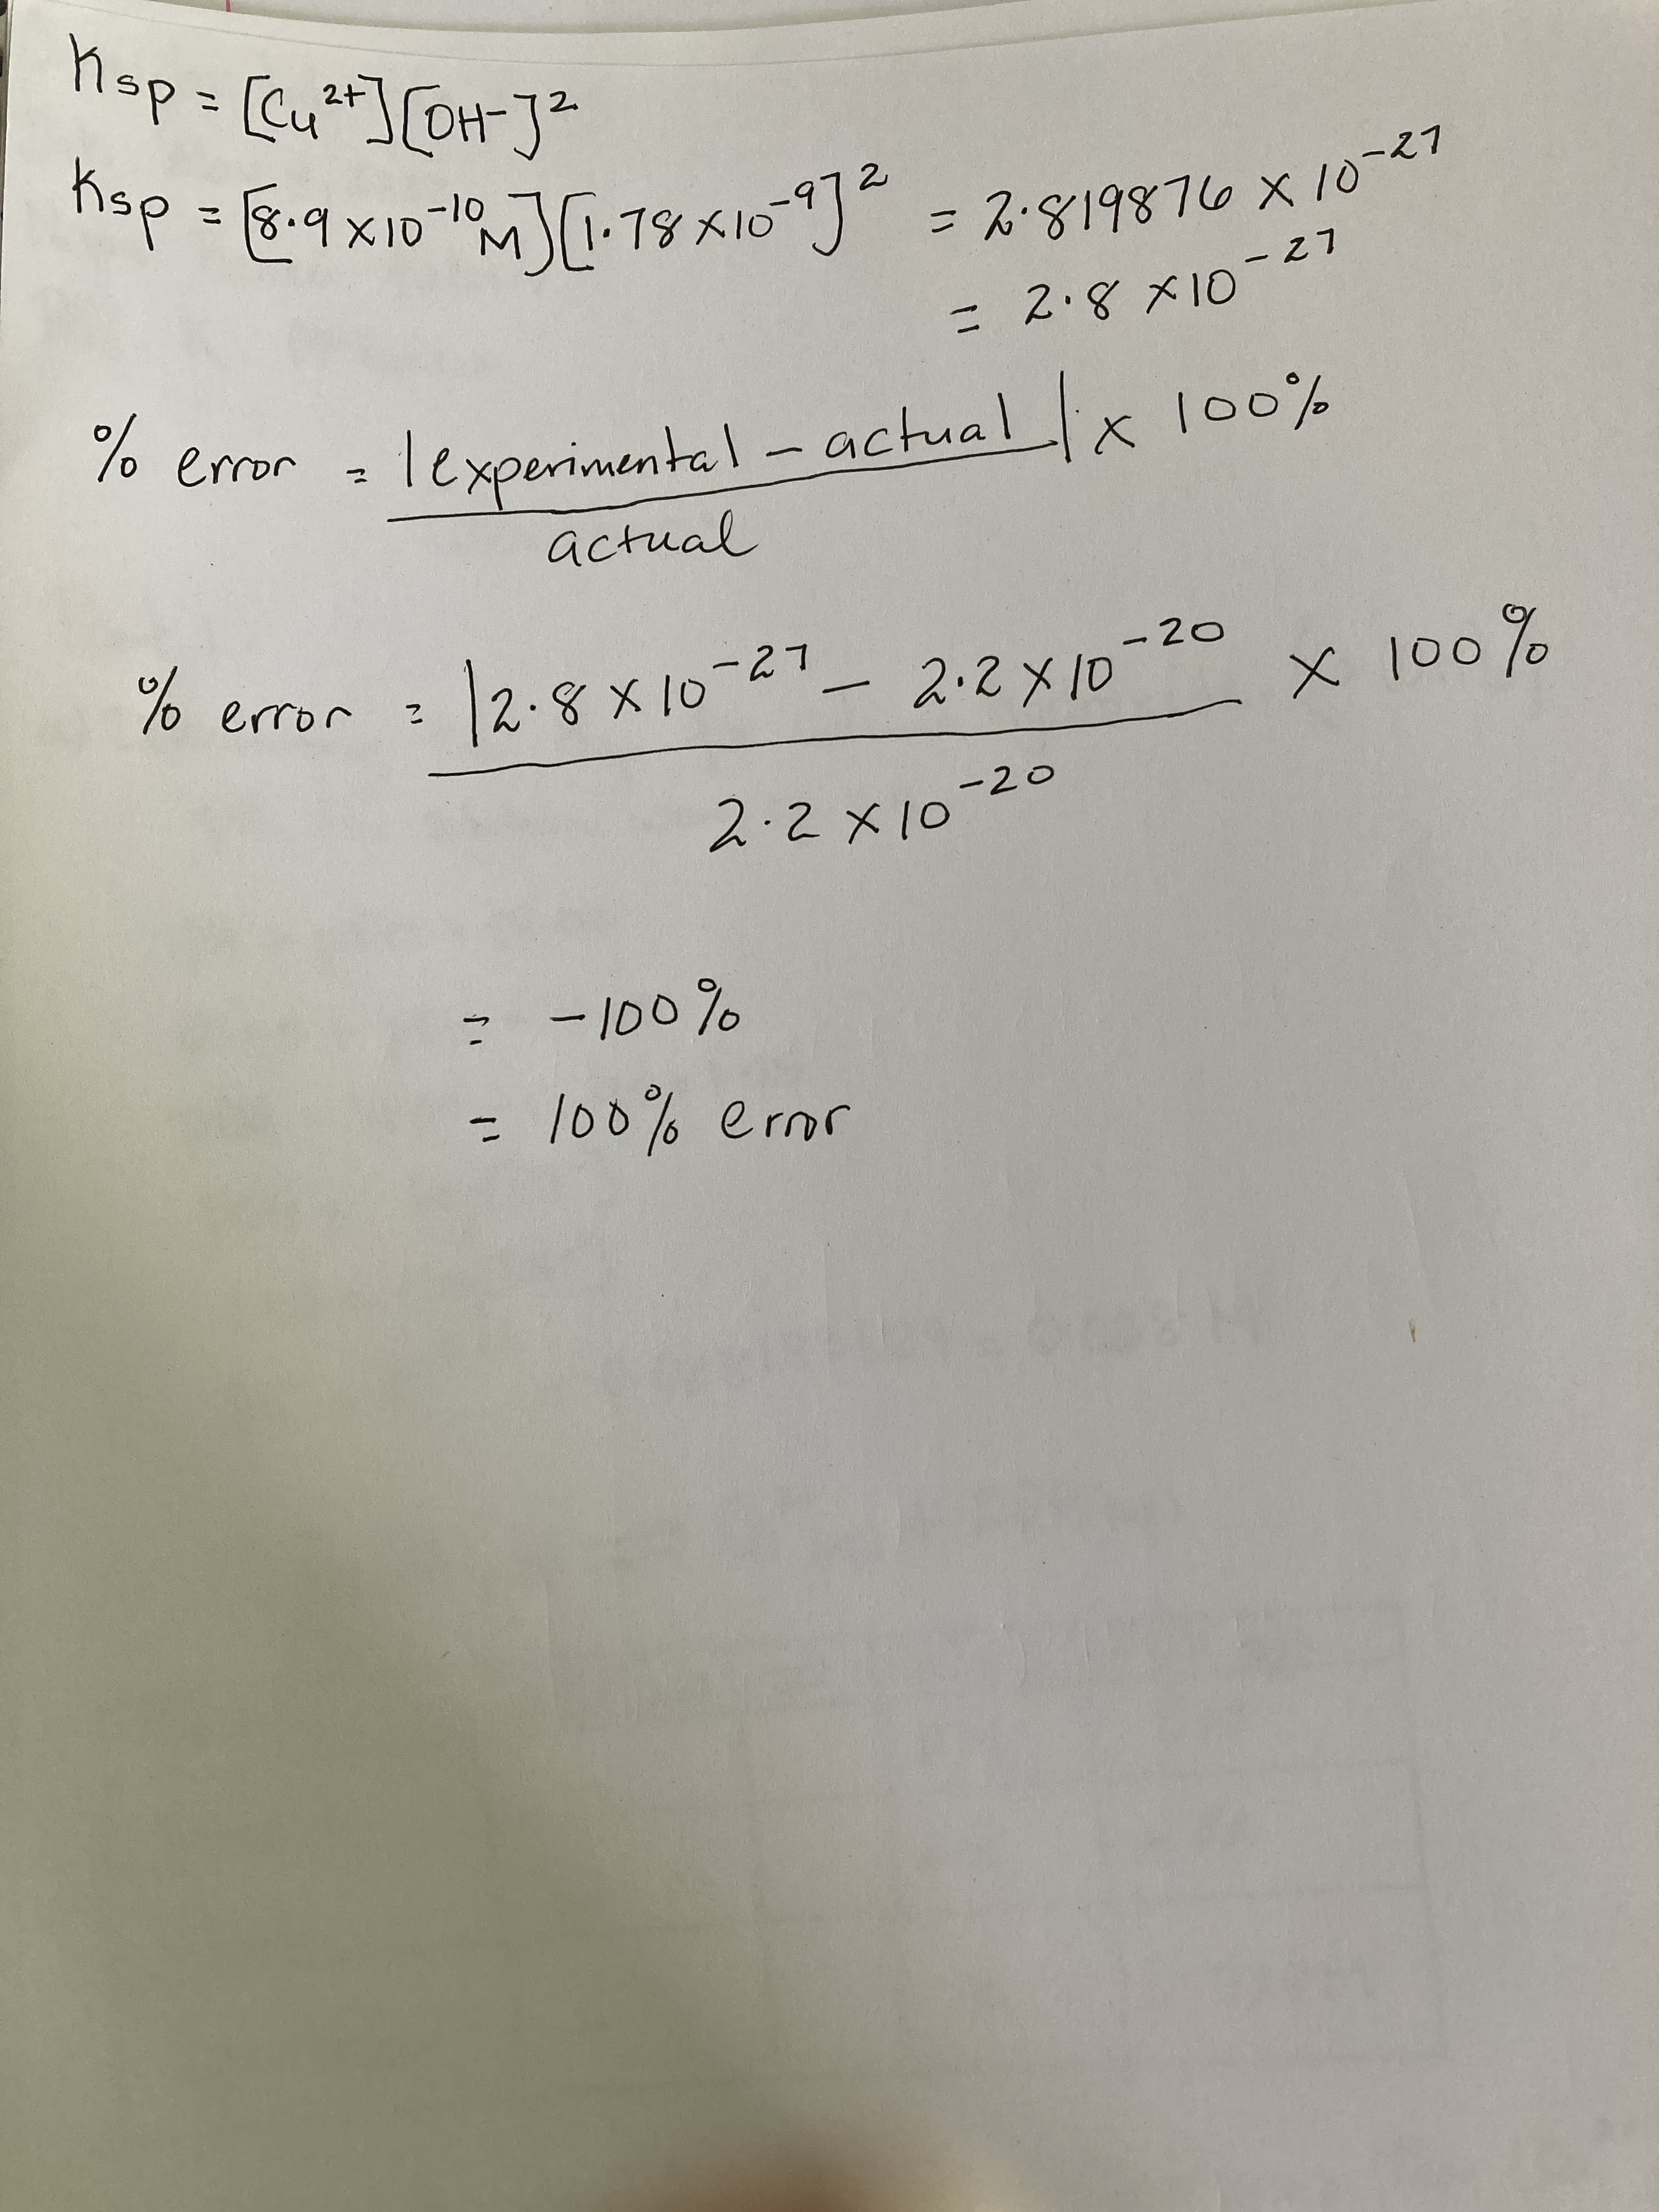 Ksp = [Cu²⁺][OH⁻]²
Ksp = [8.9 x 10⁻¹⁰ M][1.78 x 10⁻⁹]² = 2.819876 x 10⁻²⁷
= 2.8 x 10⁻²⁷
% error = |experimental - actual| x 100%
actual
% error = |2.8 x 10⁻²⁷ - 2.2 x 10⁻²⁰ x 100%
2.2 x 10⁻²⁰
= -100%
= 100% error